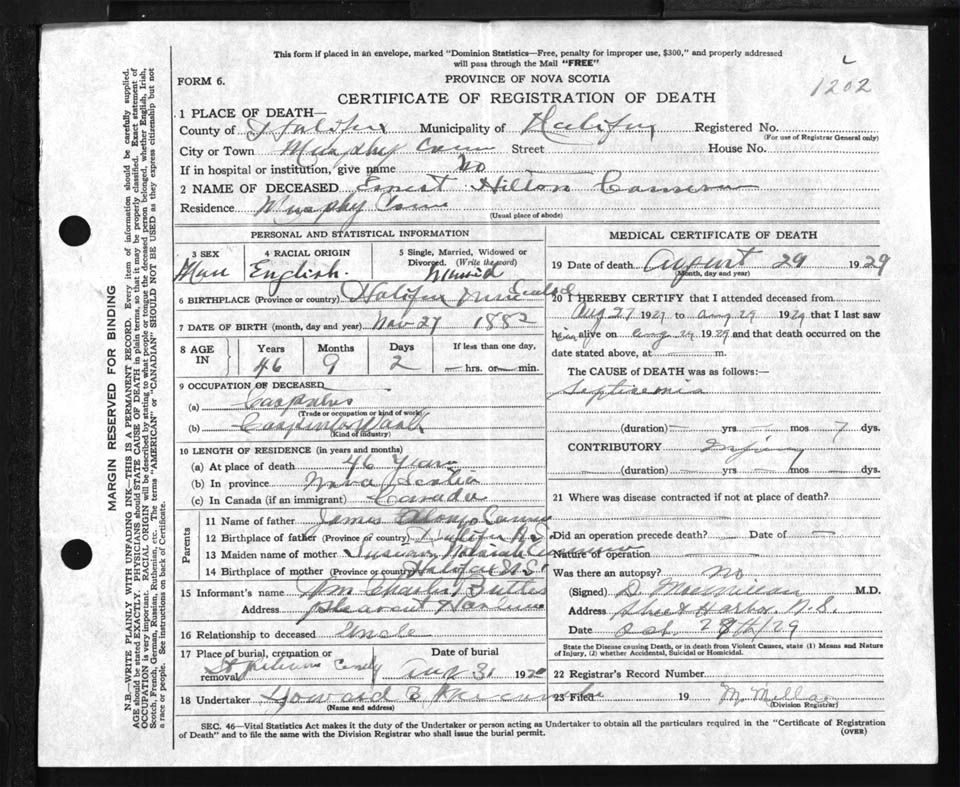 This form if placed in an envelope, marked "Dominion Statistics—Free, penalty for improper use, $300," and properly addressed
will pass through the Mail "FREE"
FORM 6.
PROVINCE OF NOVA SCOTIA
1202
CERTIFICATE OF REGISTRATION OF DEATH
1 PLACE OF DEATH—
County of Halifax Municipality of Halifax Registered No.
(For use of Registrar General only)
City or Town Murphy Cove Street House No.
If in hospital or institution, give name No
2 NAME OF DECEASED Ernest Hilton Cameron
Residence Murphy Cove
(Usual place of abode)
PERSONAL AND STATISTICAL INFORMATION
3 SEX 4 RACIAL ORIGIN 5 Single, Married, Widowed or
Divorced. (Write the word)
Man English. Married
6 BIRTHPLACE (Province or country) Halifax Nova Scotia
7 DATE OF BIRTH (month, day and year) Nov 27 1882
8 AGE IN Years Months Days If less than one day,
46 9 2 — hrs. or — min.
9 OCCUPATION OF DECEASED
(a) Carpenter
(Trade or occupation or kind of work)
(b) Carpenter Work
(Kind of industry)
10 LENGTH OF RESIDENCE (in years and months)
(a) At place of death 46 Years
(b) In province Nova Scotia
(c) In Canada (if an immigrant) Canada
Parents
11 Name of father James Alonzo
12 Birthplace of father (Province or country) Halifax N.S.
13 Maiden name of mother
14 Birthplace of mother (Province or country) Halifax N.S.
15 Informant's name Wm Charles
Address Pleasant Harbour
16 Relationship to deceased Uncle
17 Place of burial, cremation or
removal Date of burial
Aug 31 1929
18 Undertaker Howard
(Name and address)
MEDICAL CERTIFICATE OF DEATH
19 Date of death August 29 1929
(Month, day and year)
20 I HEREBY CERTIFY that I attended deceased from
Aug 27 1929 to Aug 29 1929 that I last saw
him alive on Aug 29 1929 and that death occurred on the
date stated above, at — m.
The CAUSE of DEATH was as follows:—
Septicemia
(duration) — yrs — mos 7 dys.
CONTRIBUTORY Injury
(duration) — yrs mos dys.
21 Where was disease contracted if not at place of death?
Did an operation precede death? — Date of —
Nature of operation —
Was there an autopsy? No
(Signed) D MacMillan M.D.
Address Sheet Harbor N.S.
Date Oct. 28th/29
State the Disease causing Death, or in death from Violent Causes, state (1) Means and Nature
of Injury, (2) whether Accidental, Suicidal or Homicidal.
22 Registrar's Record Number
23 Filed 19
(Division Registrar)
SEC. 46—Vital Statistics Act makes it the duty of the Undertaker or person acting as Undertaker to obtain all the particulars required in the "Certificate of Registration
of Death" and to file the same with the Division Registrar who shall issue the burial permit.
(OVER)
MARGIN RESERVED FOR BINDING
N.B.—WRITE PLAINLY WITH UNFADING INK—THIS IS A PERMANENT RECORD. Every item of information should be carefully supplied.
AGE should be stated EXACTLY. PHYSICIANS should STATE CAUSE OF DEATH in plain terms, so that it may be properly classified. Exact statement of
OCCUPATION is very important. RACIAL ORIGIN will be described by stating to what people or tongue the deceased person belonged, whether English, Irish,
Scotch, French, German, Russian, Ruthenian, etc. The terms "AMERICAN" or "CANADIAN" SHOULD NOT BE USED as they express citizenship but not
a race or people. See instructions on back of Certificate.